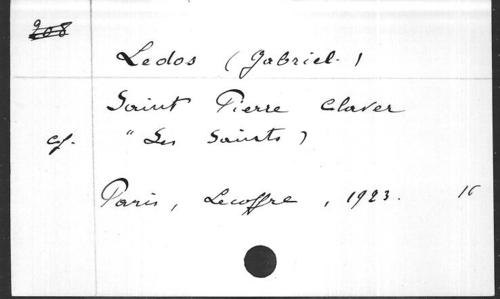 208
Ledos (Gabriel.)
Saint Pierre Claver
cf. "Les Saints)
Paris, Lecoffre, 1923. 16